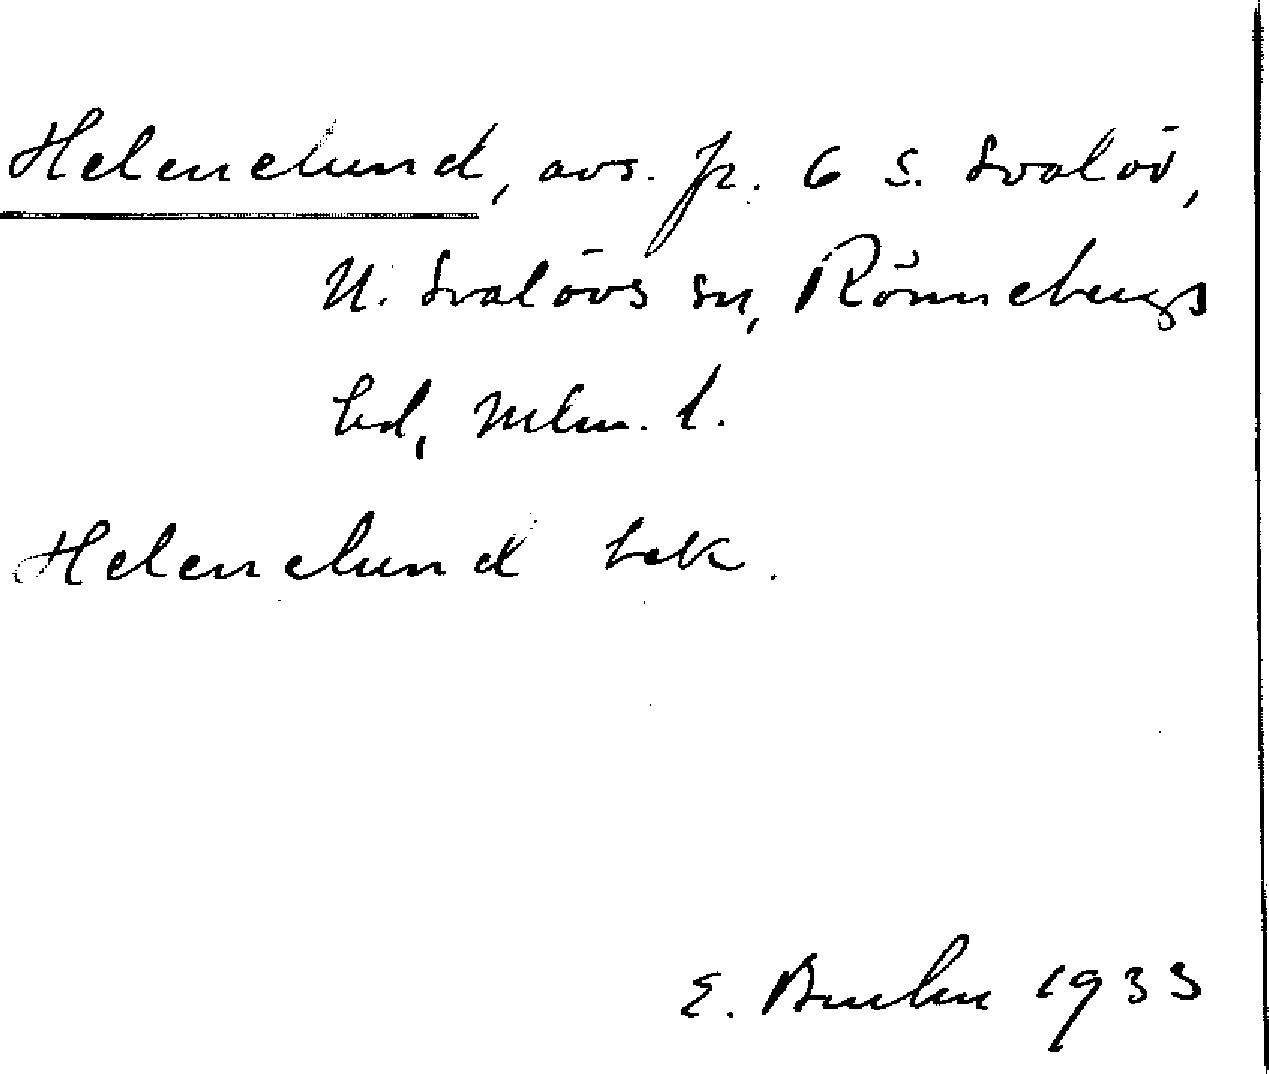 Helenelund, avs. fr. 6 S. Svalöv,
N. Svalövs sn, Rönnebergs
hd, Mlm. l.
Helenelund bek.
E. 1933